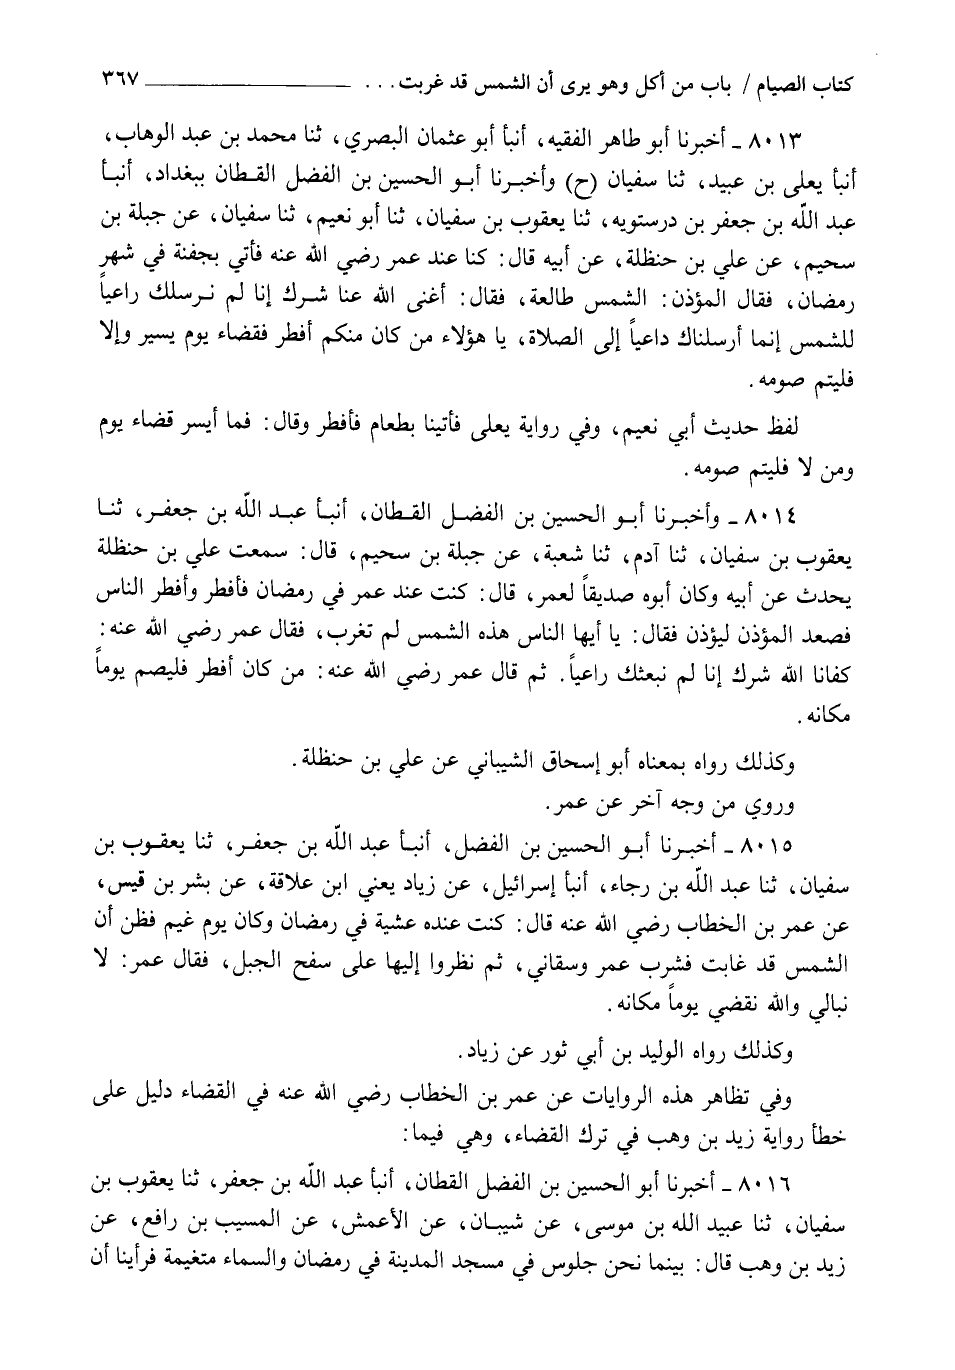 كتاب الصيام / باب من أكل وهو يرى أن الشمس قد غربت . . . ٣٦٧
٨٠١٣ ـ أخبرنا أبو طاهر الفقيه، أنبأ أبو عثمان البصري، ثنا محمد بن عبد الوهاب،
أنبأ يعلى بن عبيد، ثنا سفيان (ح) وأخبرنا أبو الحسين بن الفضل القطان ببغداد، أنبأ
عبد اللّه بن جعفر بن درستويه، ثنا يعقوب بن سفيان، ثنا أبو نعيم، ثنا سفيان، عن جبلة بن
سحيم، عن علي بن حنظلة، عن أبيه قال: كنا عند عمر رضي الله عنه فأتي بجفنة في شهر
رمضان، فقال المؤذن: الشمس طالعة، فقال: أغنى الله عنا شرك إنا لم نرسلك راعياً
للشمس إنما أرسلناك داعياً إلى الصلاة، يا هؤلاء من كان منكم أفطر فقضاء يوم يسير وإلا
فليتم صومه.
لفظ حديث أبي نعيم، وفي رواية يعلى فأتينا بطعام فأفطر وقال: فما أيسر قضاء يوم
ومن لا فليتم صومه.
٨٠١٤ ـ وأخبرنا أبو الحسين بن الفضل القطان، أنبأ عبد اللّه بن جعفر، ثنا
يعقوب بن سفيان، ثنا آدم، ثنا شعبة، عن جبلة بن سحيم، قال: سمعت علي بن حنظلة
يحدث عن أبيه وكان أبوه صديقاً لعمر، قال: كنت عند عمر في رمضان فأفطر وأفطر الناس
فصعد المؤذن ليؤذن فقال: يا أيها الناس هذه الشمس لم تغرب، فقال عمر رضي الله عنه:
كفانا الله شرك إنا لم نبعثك راعياً. ثم قال عمر رضي الله عنه: من كان أفطر فليصم يوماً
مكانه.
وكذلك رواه بمعناه أبو إسحاق الشيباني عن علي بن حنظلة.
وروي من وجه آخر عن عمر.
٨٠١٥ ـ أخبرنا أبو الحسين بن الفضل، أنبأ عبد اللّه بن جعفر، ثنا يعقوب بن
سفيان، ثنا عبد اللّه بن رجاء، أنبأ إسرائيل، عن زياد يعني ابن علاقة، عن بشر بن قيس،
عن عمر بن الخطاب رضي الله عنه قال: كنت عنده عشية في رمضان وكان يوم غيم فظن أن
الشمس قد غابت فشرب عمر وسقاني، ثم نظروا إليها على سفح الجبل، فقال عمر: لا
نبالي والله نقضي يوماً مكانه.
وكذلك رواه الوليد بن أبي ثور عن زياد.
وفي تظاهر هذه الروايات عن عمر بن الخطاب رضي الله عنه في القضاء دليل على
خطأ رواية زيد بن وهب في ترك القضاء، وهي فيما:
٨٠١٦ ـ أخبرنا أبو الحسين بن الفضل القطان، أنبأ عبد اللّه بن جعفر، ثنا يعقوب بن
سفيان، ثنا عبيد الله بن موسى، عن شيبان، عن الأعمش، عن المسيب بن رافع، عن
زيد بن وهب قال: بينما نحن جلوس في مسجد المدينة في رمضان والسماء متغيمة فرأينا أن